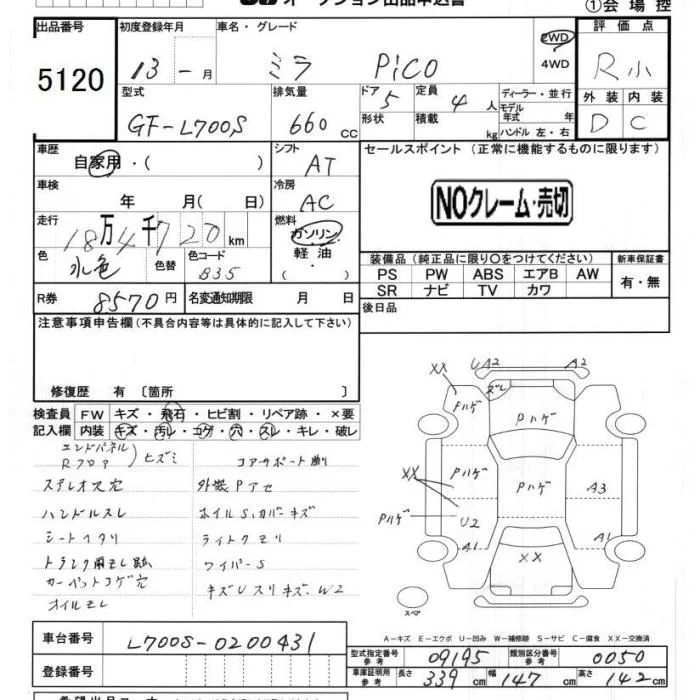 オークション出品申込書
①会場控
出品番号
5120
初度登録年月
13-月
車名・グレード
ミラ PiCO
2WD
4WD
評価点
R小
外装 内装
D C
型式
GF-L700S
排気量
660cc
ドア 5
形状
定員 4人
積載 kg
ディーラー・並行
モデル年式 年
ハンドル 左・右
車歴
自家用・( )
シフト
AT
セールスポイント(正常に機能するものに限ります)
NOクレーム・売切
車検
年 月(日)
冷房
AC
走行
18万4千720km
燃料
ガソリン
軽油
( )
色
水色
色替
色コード
B35
装備品(純正品に限り〇をつけてください)
新車保証書
PS PW ABS エアB AW
SR ナビ TV カワ
有・無
R券 8570円
名変通知期限 月 日
後日品
注意事項申告欄(不具合内容等は具体的に記入して下さい)
修復歴 有〔箇所 〕
検査員記入欄
FW キズ・飛石・ヒビ割・リペア跡・×要
内装 キズ・汚レ・コゲ・穴・スレ・キレ・破レ
エンドパネル
Rフロア
ヒズミ
コアサポート
ステレオ穴
外装Pアセ
ハンドルスレ
ホイルS,カバーキズ
シートヘタリ
ライトクモリ
ワイパーS
カーペットコゲ穴
キズUスリキズ、W2
オイルモレ
UA2
A2
XX
ズレ
Pハゲ
Pハゲ
XX
Pハゲ
Pハゲ
A3
Pハゲ
U2
A1
A1
XX
スペア
A-キズ E-エクボ U-凹み W-補修跡 S-サビ C-腐食 XX-交換済
車台番号
L700S-0200431
登録番号
型式指定番号 参考
09195
類別区分番号 参考
0050
車庫証明用 参考
長さ 339cm
幅 147cm
高さ 142cm